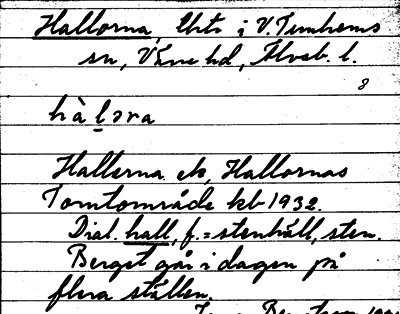 Hallorna, Lht i V. Tunhems
sn, Väne hd, Älvsb. l.
8
hàlɔra
Hallerna ek, Hallornas
Tomtområde kb 1932.
Dial. hall, f. = stenhäll, sten.
Berget går i dagen på
flera ställen.